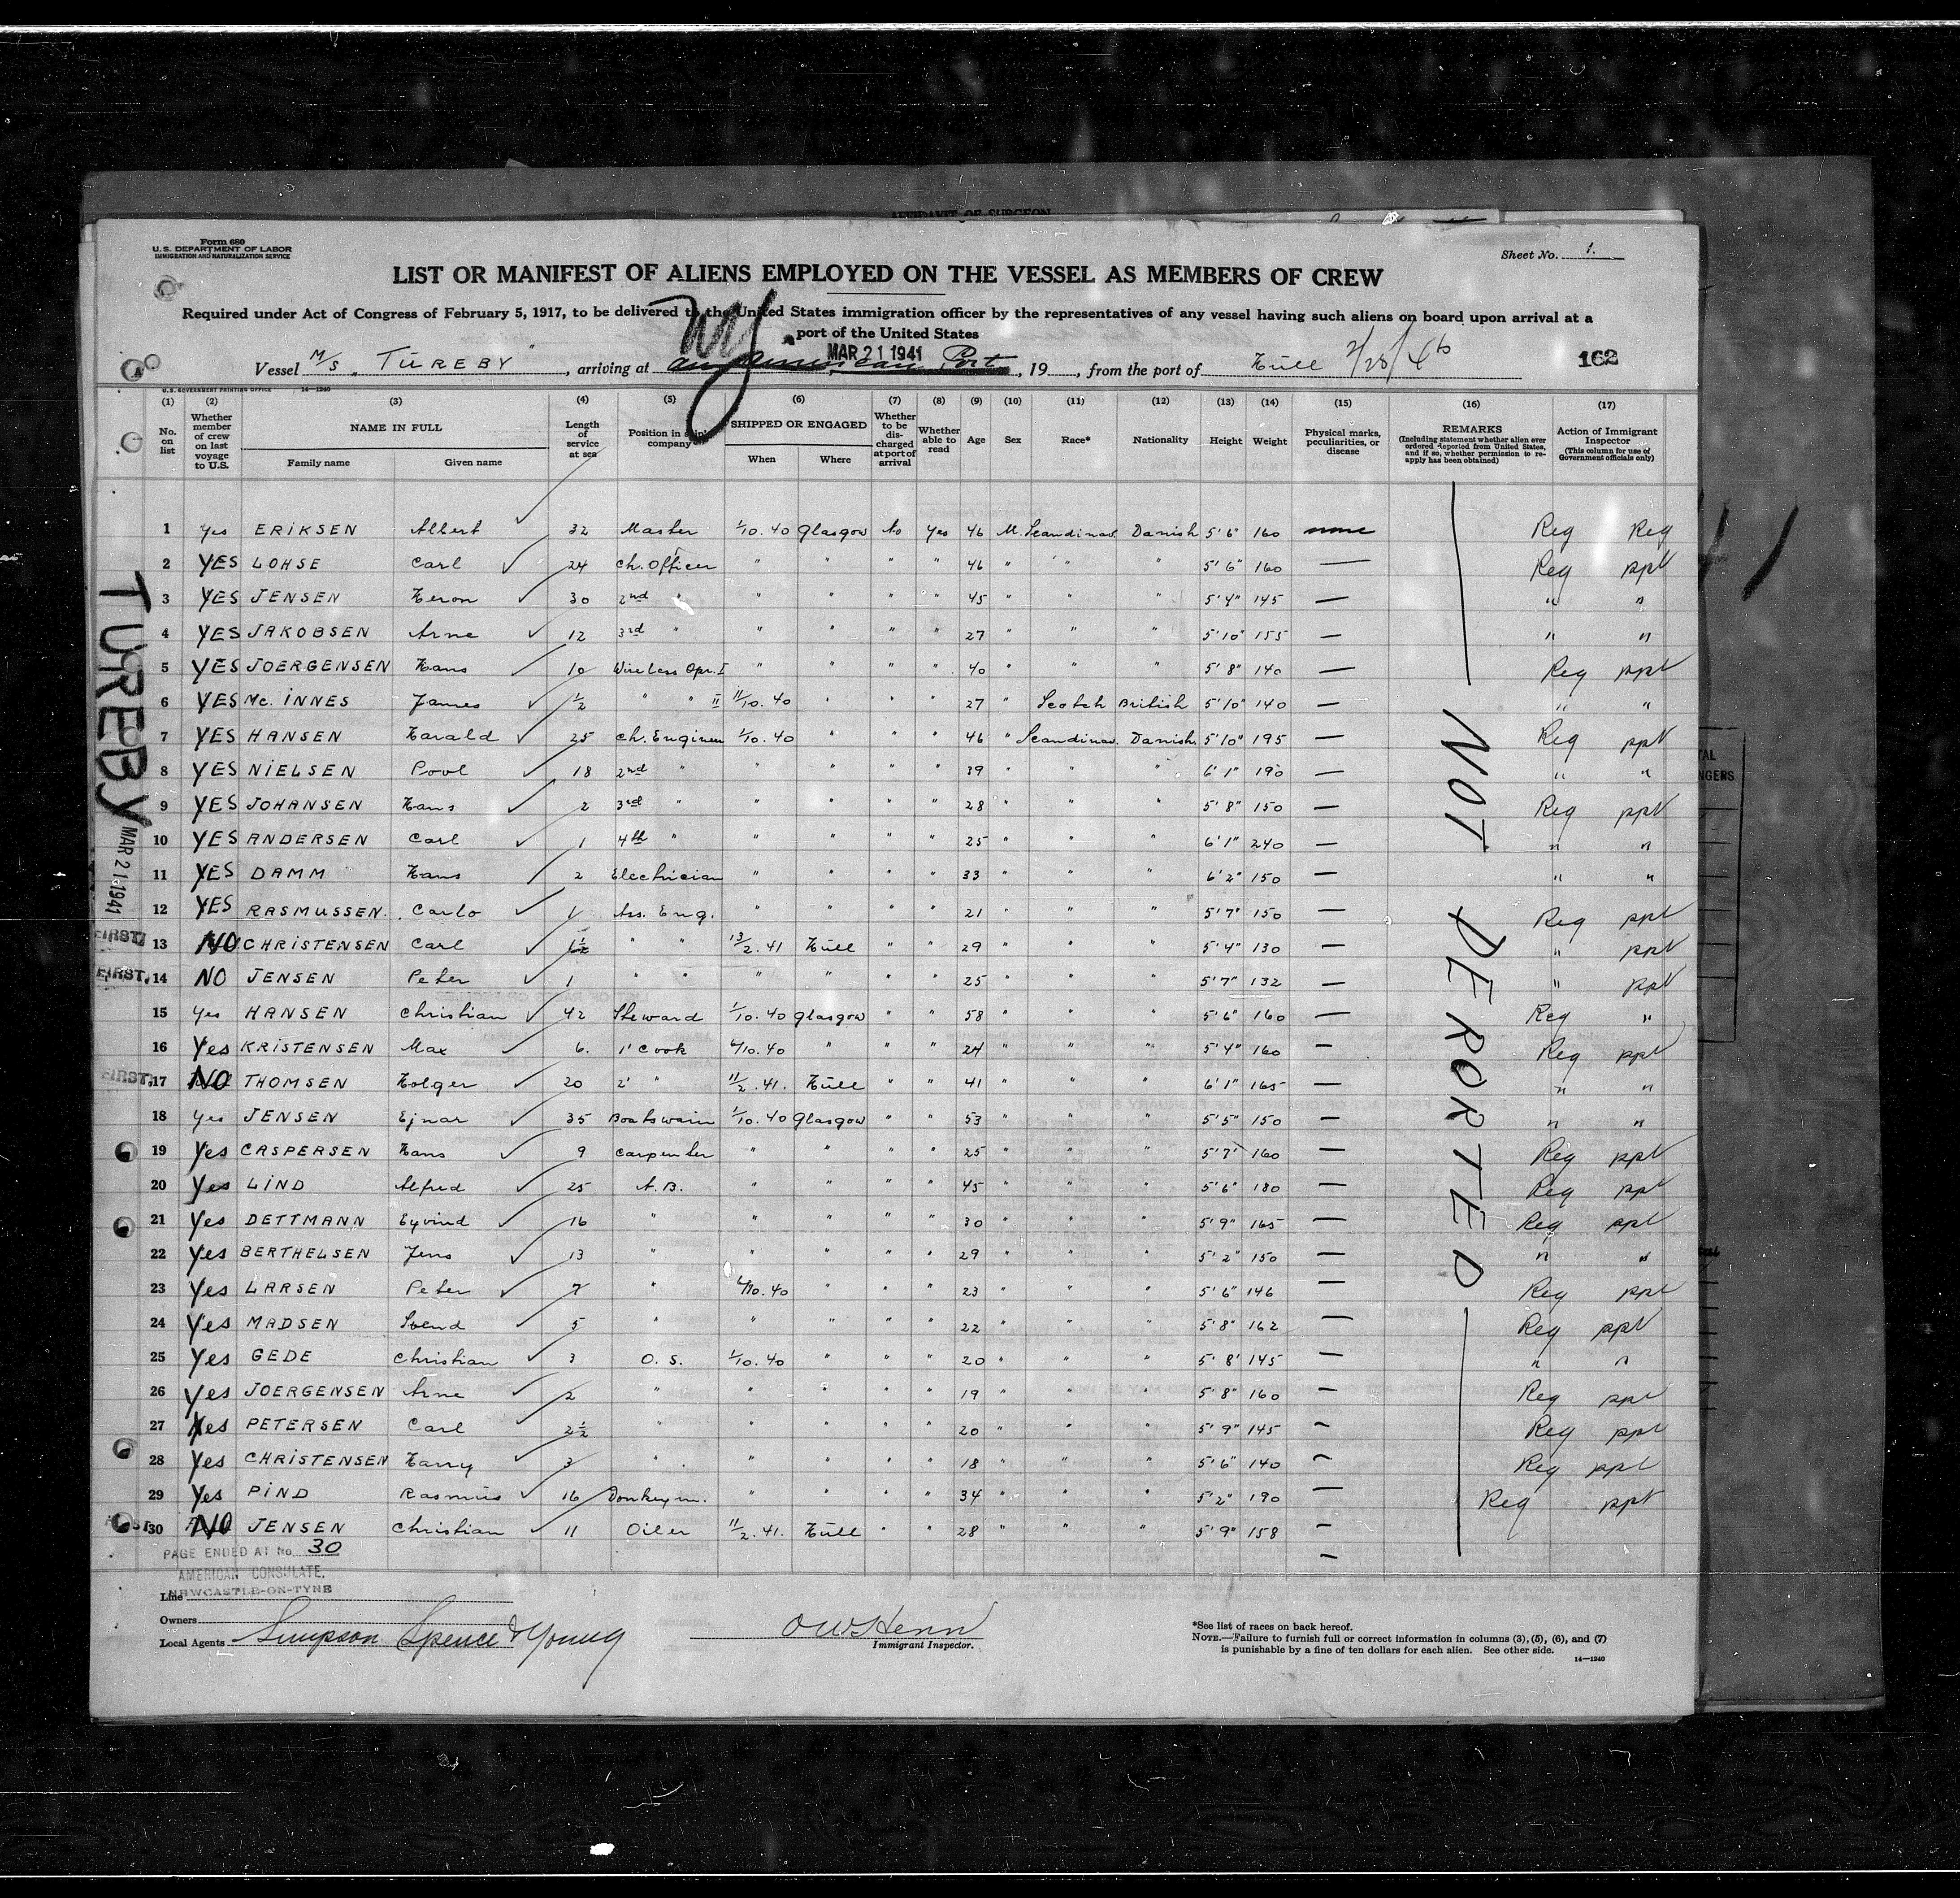 AFFIDAVIT OF SURGEON
Form 680
U.S. DEPARTMENT OF LABOR
IMMIGRATION AND NATURALIZATION SERVICE
Sheet No. 1.
LIST OR MANIFEST OF ALIENS EMPLOYED ON THE VESSEL AS MEMBERS OF CREW
Required under Act of Congress of February 5, 1917, to be delivered to the United States immigration officer by the representatives of any vessel having such aliens on board upon arrival at a
port of the United States
NY
MAR 21 1941
Vessel M/S "TÜREBY", arriving at any American Port, 19, from the port of Hüll 2/28/41
162
U.S. GOVERNMENT PRINTING OFFICE 14—1240
(1) (2) (3) (4) (5) (6) (7) (8) (9) (10) (11) (12) (13) (14) (15) (16) (17)
No. on list
Whether member of crew on last voyage to U.S.
NAME IN FULL
Family name Given name
Length of service at sea
Position in ship's company
SHIPPED OR ENGAGED
When Where
Whether to be discharged at port of arrival
Whether able to read
Age
Sex
Race*
Nationality
Height
Weight
Physical marks, peculiarities, or disease
REMARKS
(Including statement whether alien ever ordered deported from United States, and if so, whether permission to reapply has been obtained)
Action of Immigrant Inspector
(This column for use of Government officials only)
1 Yes ERIKSEN Albert 32 Master 1/10.40 Glasgow No Yes 46 M. Scandinav. Danish 5'6" 160 none Reg Reg
2 YES LOHSE Carl 24 Ch. Officer " " " " 46 " " " 5'6" 160 — Reg ppt
3 YES JENSEN Heron 30 2nd " " " " " 45 " " " 5'4" 145 — " "
4 YES JAKOBSEN Arne 12 3rd " " " " " 27 " " " 5'10" 155 — " "
5 YES JOERGENSEN Hans 10 Wireless Opr. I " " " " 40 " " " 5'8" 140 — Reg ppt
6 YES Mc. INNES James 1/2 " " II 11/10.40 " " " 27 " Scotch British 5'10" 140 — " "
7 YES HANSEN Harald 25 Ch. Engineer 1/10.40 " " " 46 " Scandinav. Danish 5'10" 195 — Reg ppt
8 YES NIELSEN Povl 18 2nd " " " " " 39 " " " 6'1" 190 — " "
9 YES JOHANSEN Hans 2 3rd " " " " " 28 " " " 5'8" 150 — Reg ppt
10 YES ANDERSEN Carl 1 4th " " " " " 25 " " " 6'1" 240 — " "
11 YES DAMM Hans 2 Electrician " " " " 33 " " " 6'2" 150 — " "
12 YES RASMUSSEN. Carlo 1 Ass. Eng. " " " " 21 " " " 5'7" 150 — Reg ppt
FIRST. 13 NO CHRISTENSEN Carl 1 1/2 " " 13/2.41 Hüll " " 29 " " " 5'4" 130 — " ppt
FIRST. 14 NO JENSEN Peter 1 " " " " " " 25 " " " 5'7" 132 — " ppt
15 Yes HANSEN Christian 42 Steward 1/10.40 Glasgow " " 58 " " " 5'6" 160 — Reg "
16 Yes KRISTENSEN Max 6. 1' Cook 4/10.40 " " " 24 " " " 5'4" 160 — Reg ppt
FIRST. 17 NO THOMSEN Holger 20 2' " 11/2.41. Hüll " " 41 " " " 6'1" 165 — " "
18 Yes JENSEN Ejnar 35 Boatswain 1/10.40 Glasgow " " 53 " " " 5'5" 150 — " "
19 Yes CASPERSEN Hans 9 Carpenter " " " " 25 " " " 5'7" 160 — Reg ppt
20 Yes LIND Alfred 25 A.B. " " " " 45 " " " 5'6" 180 — Reg ppt
21 Yes DETTMANN Eyvind 16 " " " " " 30 " " " 5'9" 165 — Reg ppt
22 Yes BERTHELSEN Jens 13 " " " " " 29 " " " 5'2" 150 — " "
23 Yes LARSEN Peter 7 " 4/10.40 " " " 23 " " " 5'6" 146 — Reg ppt
24 Yes MADSEN Svend 5 " " " " " 22 " " " 5'8" 162 — Reg ppt
25 Yes GEDE Christian 3 O.S. 1/10.40 " " " 20 " " " 5'8" 145 — " "
26 Yes JOERGENSEN Arne 2 " " " " " 19 " " " 5'8" 160 — Reg ppt
27 Yes PETERSEN Carl 2 1/2 " " " " " 20 " " " 5'9" 145 — Reg ppt
28 Yes CHRISTENSEN Harry 3 " " " " " 18 " " " 5'6" 140 — Reg ppt
29 Yes PIND Rasmus 16 Donkeym. " " " " 34 " " " 5'2" 190 — Reg ppt
30 NO JENSEN Christian 11 Oiler 11/2.41. Hüll " " 28 " " " 5'9" 158 —
NOT DEPORTED
TUREBY
MAR 21 1941
PAGE ENDED AT No. 30
AMERICAN CONSULATE.
NEWCASTLE-ON-TYNE
Line
Owners
Local Agents Simpson Spence & Young
OWHenn
Immigrant Inspector.
*See list of races on back hereof.
NOTE.—Failure to furnish full or correct information in columns (3), (5), (6), and (7)
is punishable by a fine of ten dollars for each alien. See other side.
14—1240